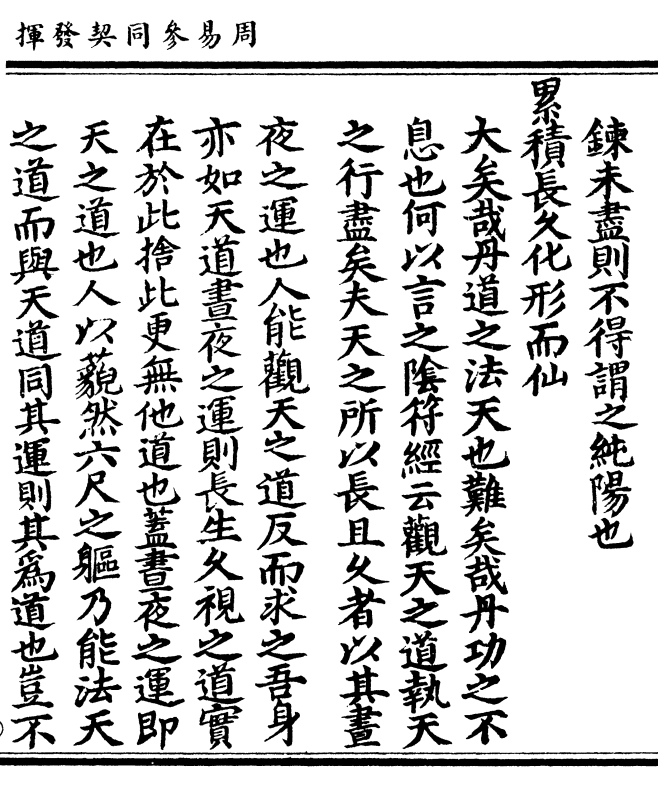 周易參同契發揮
鍊未盡則不得謂之純陽也
累積長久化形而仙
大矣哉丹道之法天也難矣哉丹功之不
息也何以言之陰符經云觀天之道執天
之行盡矣夫天之所以長且久者以其晝
夜之運也人能觀天之道反而求之吾身
亦如天道晝夜之運則長生久視之道實
在於此捨此更無他道也蓋晝夜之運即
天之道也人以藐然六尺之軀乃能法天
之道而與天道同其運則其爲道也豈不